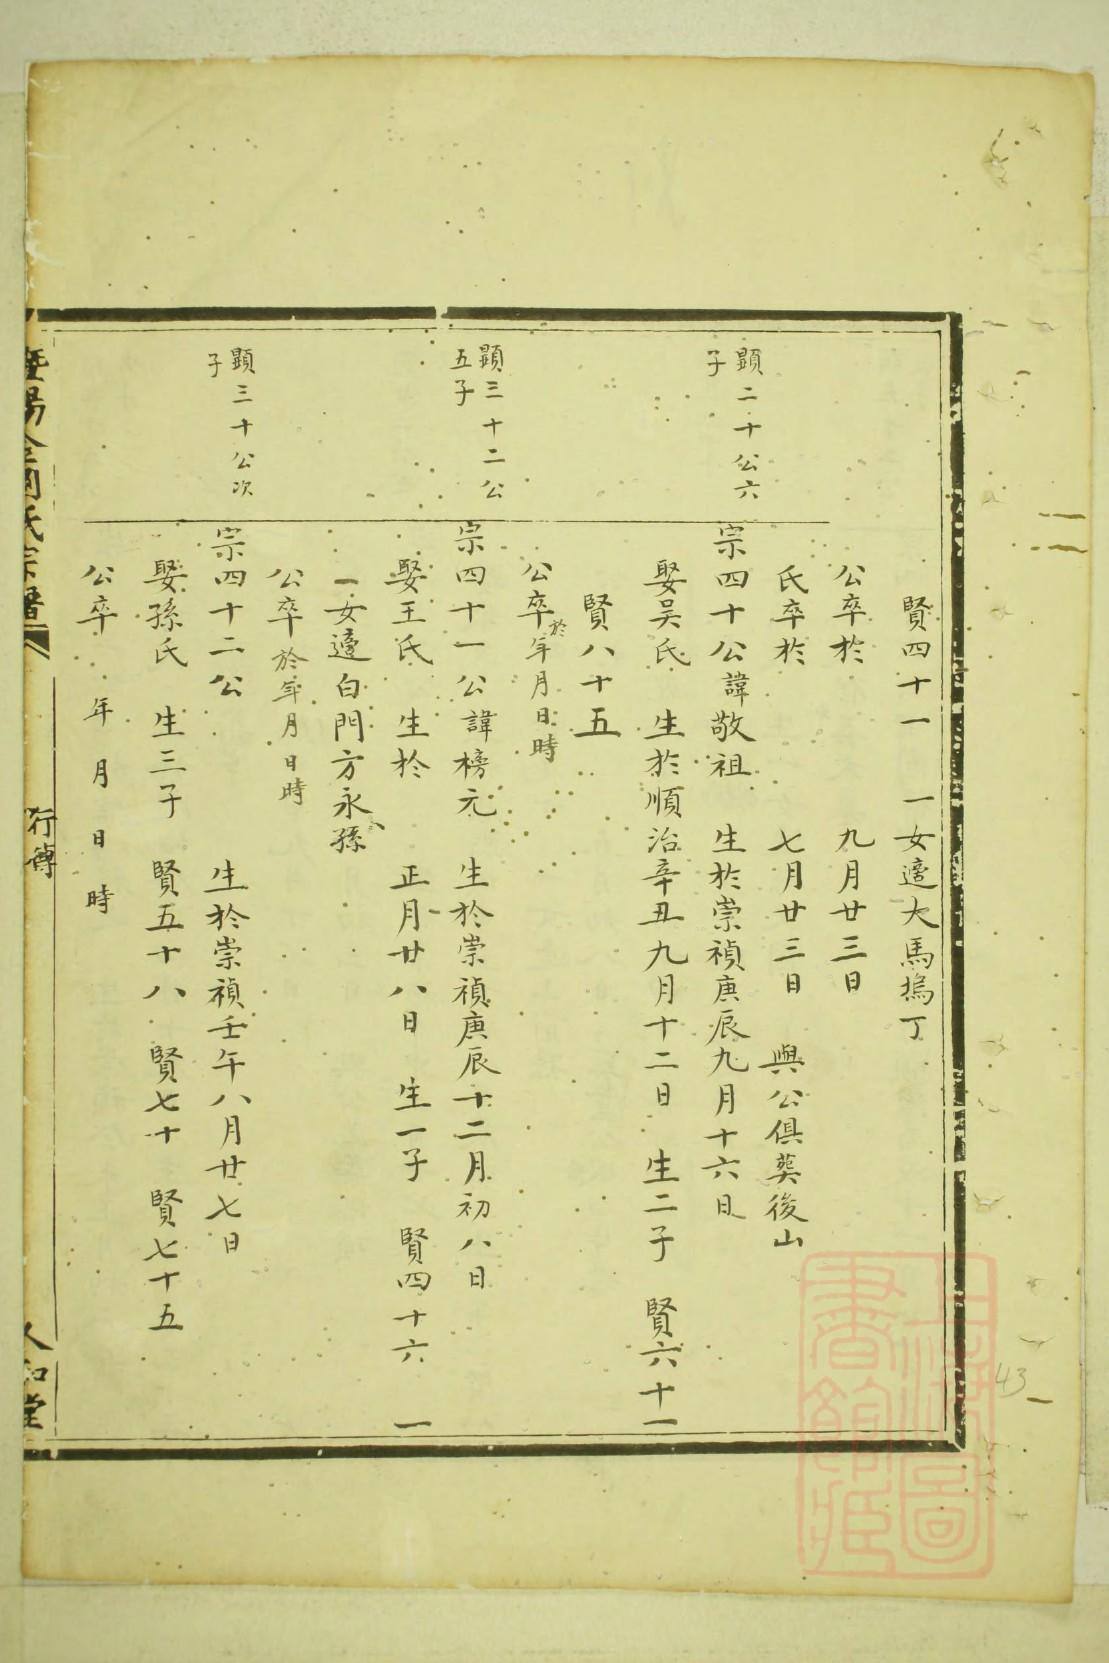 賢四十一 一女適大馬塢丁
公卒於 九月廿三日
氏卒於 七月廿三日 與公俱葬後山
顯二十公六
子
宗四十公諱敬祖 生於崇禎庚辰九月十六日
娶吴氏 生於順治辛丑九月十二日 生二子 賢六十一
賢八十五
公卒於年月日時
顯三十二公
五子
宗四十一公諱榜元 生於崇禎庚辰十二月初八日
娶王氏 生於 正月廿八日 生一子 賢四十六 一
一女適白門方永孫
公卒於年月日時
顯三十公次
子
宗四十二公 生於崇禎壬午八月廿七日
娶孫氏 生三子 賢五十八 賢七十 賢七十五
公卒 年月日時
行傳
人和堂
上海圖
書館藏
43